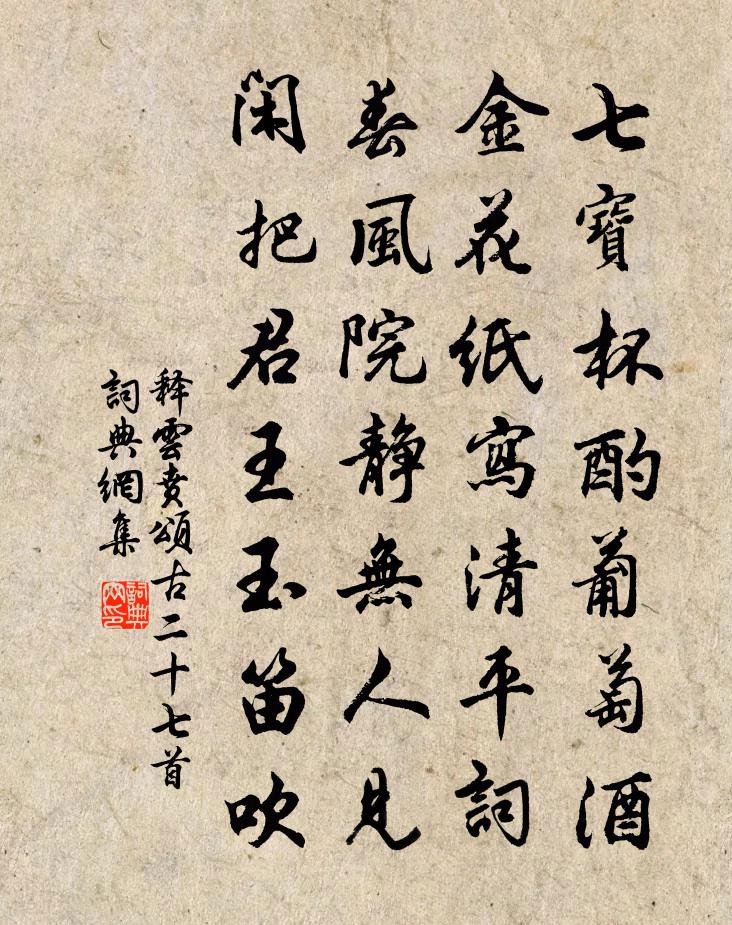 七寶杯酌葡萄酒
金花紙寫清平詞
春風院静無人見
閑把君王玉笛吹
释雲賁頌古二十七首
詞典網集
詞典网印